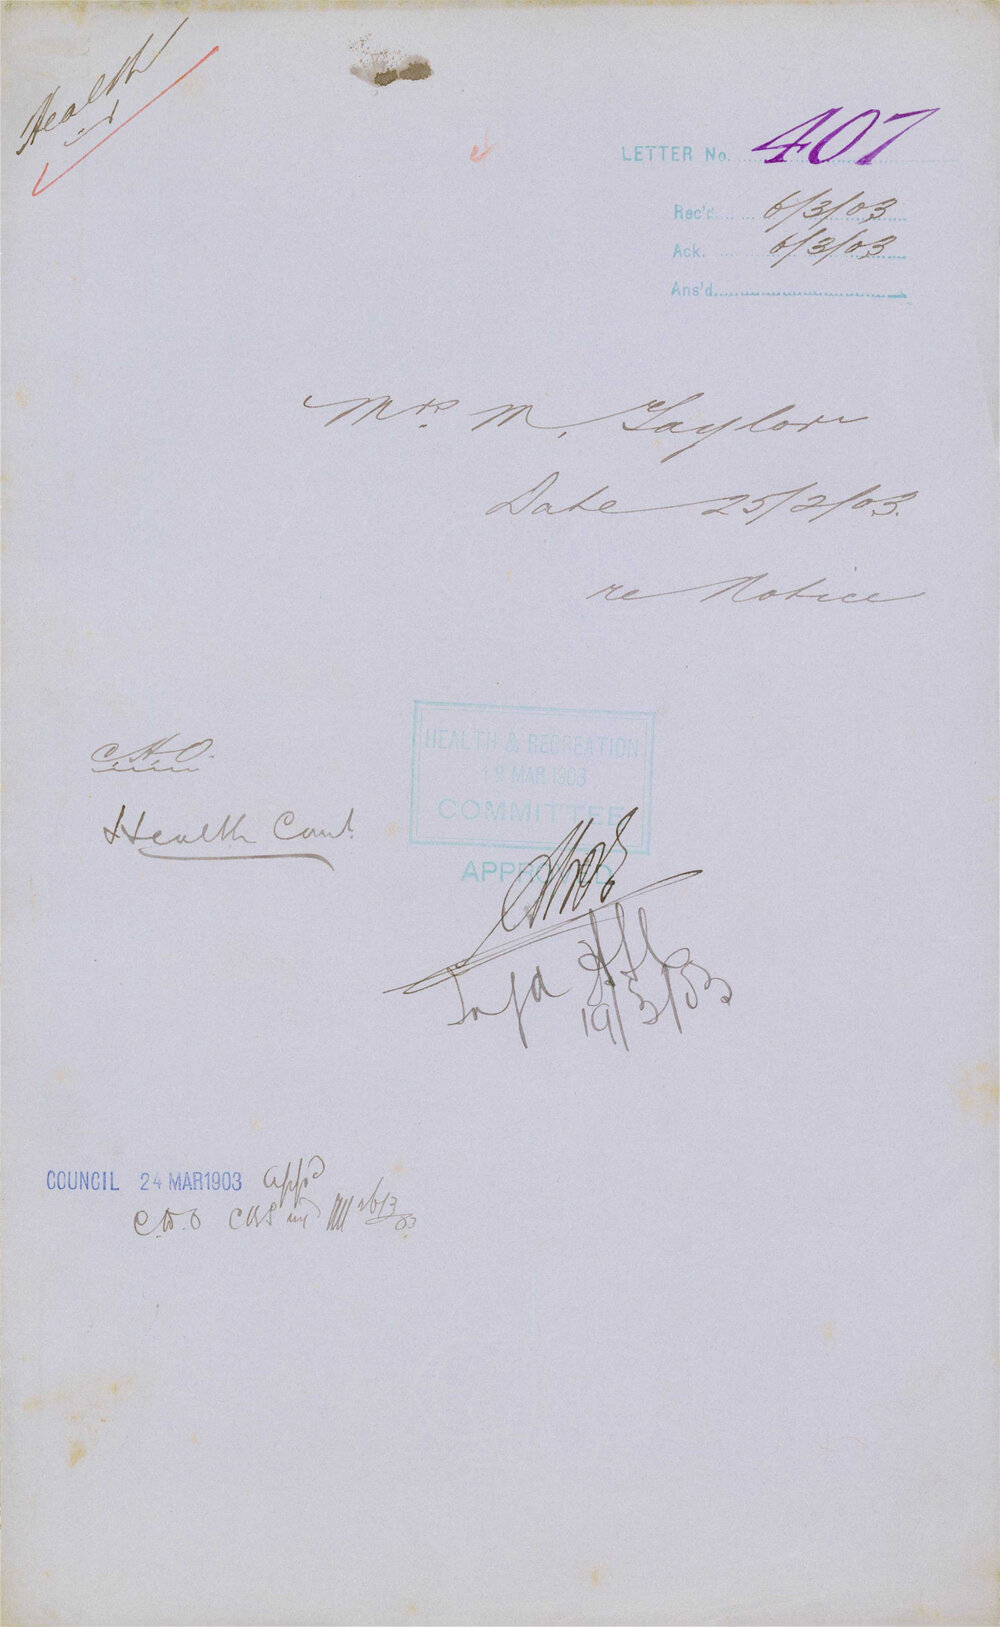 Health
LETTER No. 407
Rec'd 6/3/03
Ack. 6/3/03
Ans'd
Mrs. M. Taylor
Date 25/2/03.
re Notice
HEALTH & RECREATION
18 MAR 1903
COMMITTEE
APPROVED
C.H.O.
Health Comt.
Inf'd
19/3/03
COUNCIL 24 MAR 1903 App'd
C.H.O 26/3/03